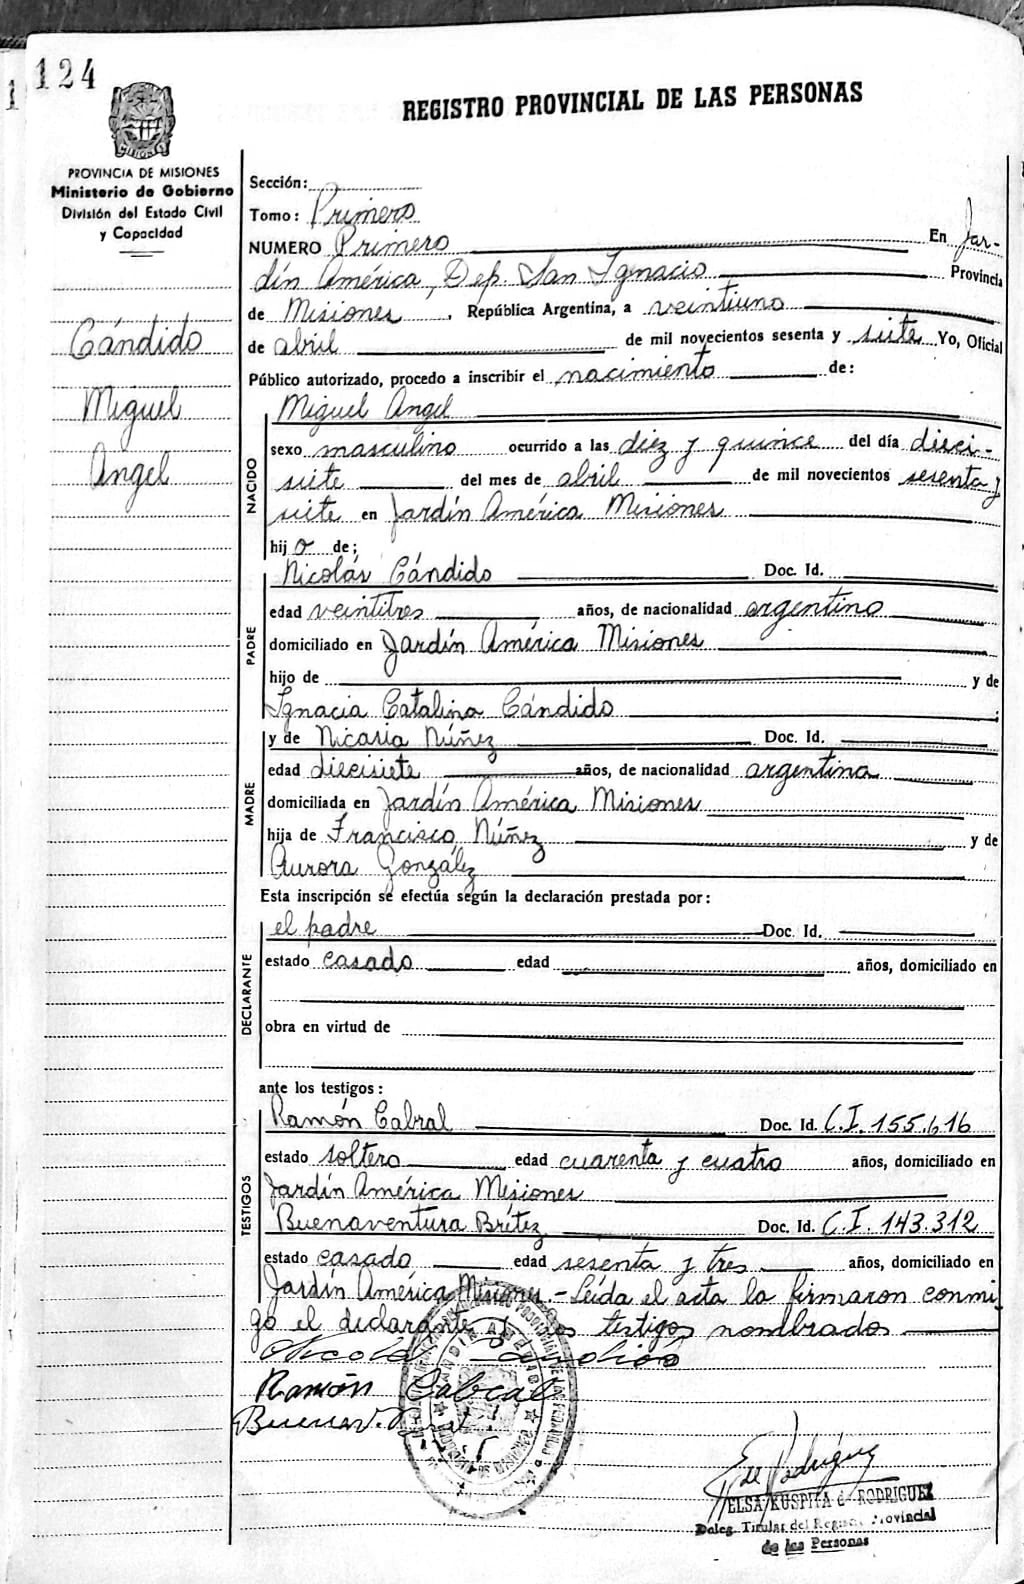 124
REGISTRO PROVINCIAL DE LAS PERSONAS
MISIONES
PROVINCIA DE MISIONES
Ministerio de Gobierno
División del Estado Civil
y Capacidad
Cándido
Miguel
Angel
Sección:
Tomo: Primero
NUMERO Primero En Jar-
dín América, Dep. San Ignacio Provincia
de Misiones, República Argentina, a veintiuno
de abril de mil novecientos sesenta y siete Yo, Oficial
Público autorizado, procedo a inscribir el nacimiento de:
NACIDO
Miguel Angel
sexo masculino ocurrido a las diez y quince del día dieci-
siete del mes de abril de mil novecientos sesenta y
siete en Jardín América Misiones
hijo de;
PADRE
Nicolás Cándido Doc. Id.
edad veintitres años, de nacionalidad argentino
domiciliado en Jardín América Misiones
hijo de y de
Ignacia Catalina Cándido
MADRE
y de Nicasia Núñez Doc. Id.
edad diecisiete años, de nacionalidad argentina
domiciliada en Jardín América Misiones
hija de Francisco Núñez y de
Aurora González
Esta inscripción se efectúa según la declaración prestada por:
DECLARANTE
el padre Doc. Id.
estado casado edad años, domiciliado en
obra en virtud de
ante los testigos:
TESTIGOS
Ramón Cabral Doc. Id. C.I. 155.616
estado soltero edad cuarenta y cuatro años, domiciliado en
Jardín América Misiones
Buenaventura Brítez Doc. Id. C.I. 143.312
estado casado edad sesenta y tres años, domiciliado en
Jardín América Misiones - Leída el acta la firmaron conmi
go el declarante y los testigos nombrados
Nicolás Candido
Ramón Cabral
Buenav.
E de Rodríguez
ELSA KUSPITA de RODRIGUEZ
Deleg. Titular del Registro Provincial
de las Personas